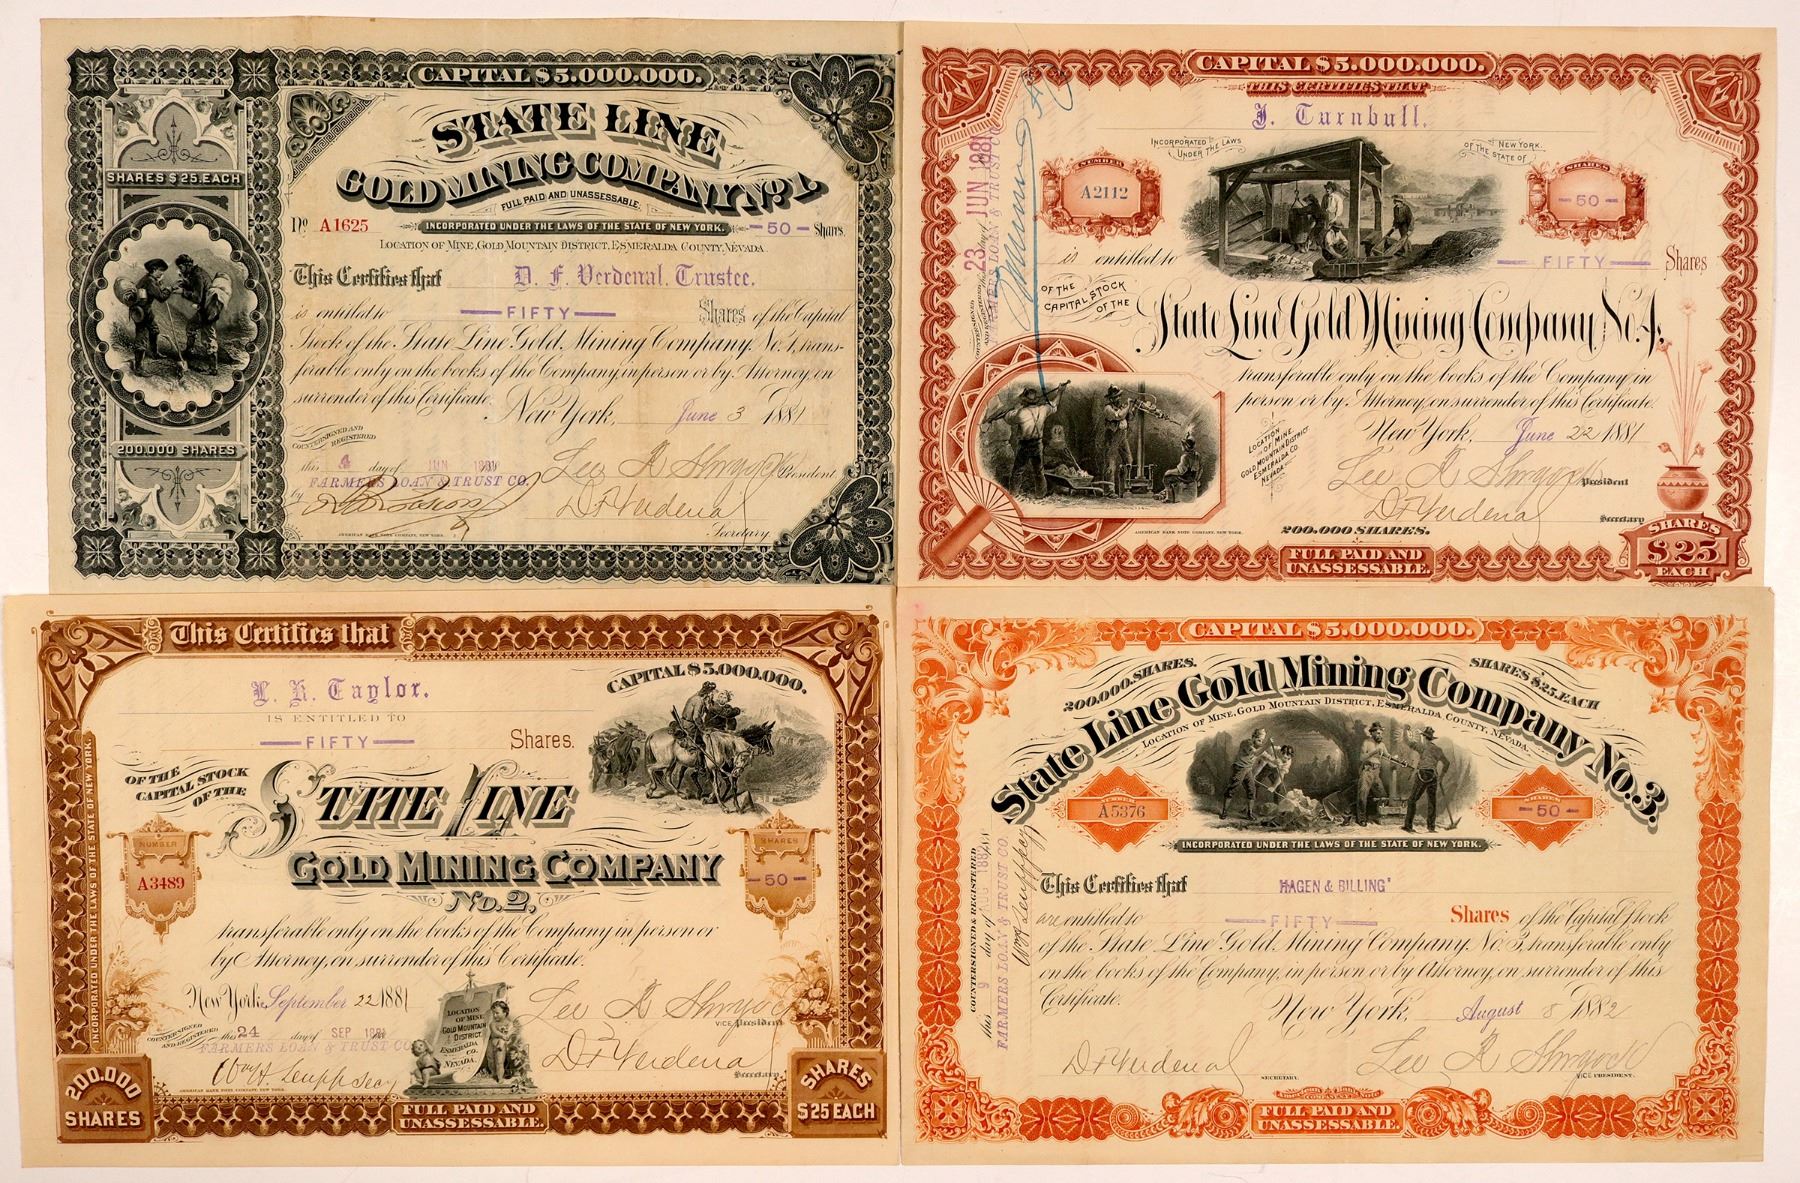 CAPITAL $5.000.000.
STATE LINE
GOLD MINING COMPANY No. 1.
FULL PAID AND UNASSESSABLE.
SHARES $25. EACH
No A1625
INCORPORATED UNDER THE LAWS OF THE STATE OF NEW YORK.
50 Shares.
LOCATION OF MINE, GOLD MOUNTAIN DISTRICT, ESMERALDA COUNTY, NEVADA.
This Certifies that D. F. Verdenal, Trustee.
is entitled to FIFTY Shares of the Capital
Stock of the State Line Gold Mining Company No. 1, trans-
ferable only on the books of the Company, in person or by Attorney, on
surrender of this Certificate. New York, June 3 1881
200.000 SHARES
COUNTERSIGNED AND
REGISTERED
this 4 day of JUN 1881
FARMERS LOAN & TRUST CO.
by
Lee R Shryock President
D F Verdenal
Secretary.
AMERICAN BANK NOTE COMPANY, NEW YORK.
CAPITAL $5.000.000.
THIS CERTIFIES THAT
J. Turnbull.
INCORPORATED UNDER THE LAWS
OF THE STATE OF NEW YORK.
NUMBER
A2112
SHARES
50
is entitled to FIFTY Shares
OF THE CAPITAL STOCK OF THE
State Line Gold Mining Company No. 4,
transferable only on the books of the Company in
person or by Attorney, on surrender of this Certificate.
New York, June 22 1881
LOCATION OF MINE, GOLD MOUNTAIN DISTRICT ESMERALDA CO. NEVADA.
Lee R Shryock President
D F Verdenal Secretary
AMERICAN BANK NOTE COMPANY, NEW YORK.
200.000 SHARES.
FULL PAID AND
UNASSESSABLE.
SHARES
$25
EACH
23 day of JUN 1881
FARMERS LOAN & TRUST CO.
This Certifies that
L. R. Taylor.
IS ENTITLED TO
FIFTY Shares.
CAPITAL $5.000.000.
OF THE
CAPITAL STOCK
OF THE
STATE LINE
GOLD MINING COMPANY
No. 2,
NUMBER
A3489
SHARES
50
transferable only on the books of the Company in person or
by Attorney, on surrender of this Certificate.
New York, September 22 1881
COUNTERSIGNED
AND REGISTERED
this 24 day of SEP 1881
FARMERS LOAN & TRUST CO
Wm H Leupp Secy
LOCATION
OF MINE
GOLD MOUNTAIN
DISTRICT.
ESMERALDA
CO.
NEVADA.
Lee R Shryock
VICE President
D F Verdenal
Secretary
AMERICAN BANK NOTE COMPANY, NEW YORK.
INCORPORATED UNDER THE LAWS OF THE STATE OF NEW YORK.
200.000
SHARES
FULL PAID AND
UNASSESSABLE.
SHARES
$25 EACH
CAPITAL $5.000.000.
200.000 SHARES.
SHARES $25. EACH
State Line Gold Mining Company No. 3.
LOCATION OF MINE, GOLD MOUNTAIN DISTRICT, ESMERALDA COUNTY, NEVADA.
NUMBER
A5376
SHARES
50
INCORPORATED UNDER THE LAWS OF THE STATE OF NEW YORK.
This Certifies that HAGEN & BILLING
are entitled to FIFTY Shares of the Capital Stock
of the State Line Gold Mining Company No. 3, transferable only
on the books of the Company, in person or by Attorney, on surrender of this
Certificate. New York, August 8 1882
D F Verdenal
SECRETARY.
Lee R Shryock
VICE PRESIDENT.
COUNTERSIGNED & REGISTERED
this 9 day of AUG 1882
FARMERS LOAN & TRUST CO.
Wm H Leupp Secy
FULL PAID AND
UNASSESSABLE.